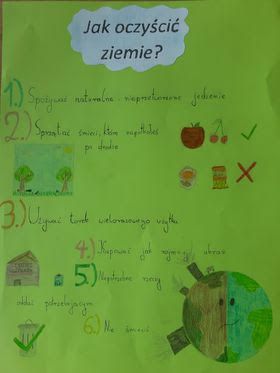 Jak oczyścić
ziemie?
1.) Spożywać naturalne nieprzetworzone jedzenie
2.) Sprzątać śmieci, które napotkałeś
po drodze
3.) Używać toreb wielorazowego użytku
4.) Kupować jak najmniej ubrań
5.) Niepotrzebne rzeczy
oddać potrzebującym
6.) Nie śmiecić